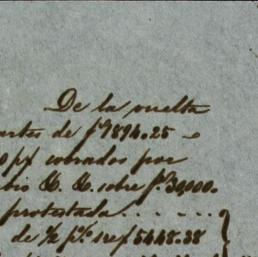 De la vuelta
artes de ps 7894.25
cobrados por
bio H. H. sobre ps 30,000.
protestada . . . . . .
de ½ p% 1 ref 5448.38